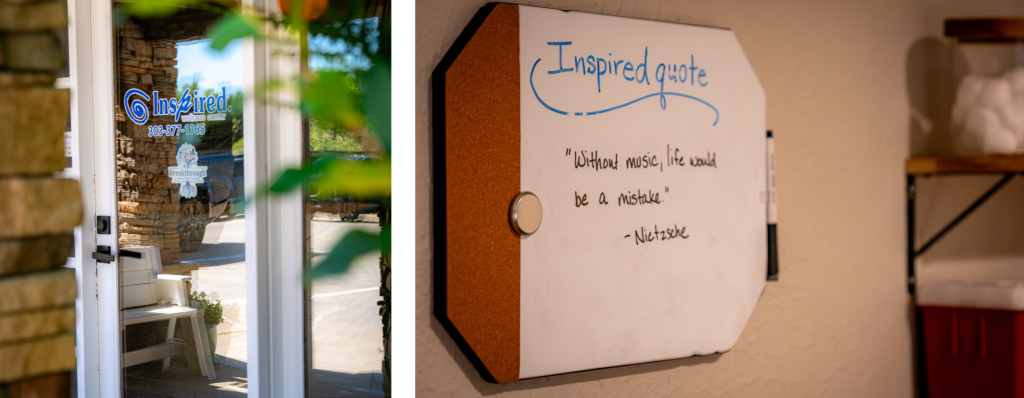 Inspired.
wellness center
303-377-1365
Breakthrough
Inspired quote
"Without music, life would
be a mistake."
-Nietzsche